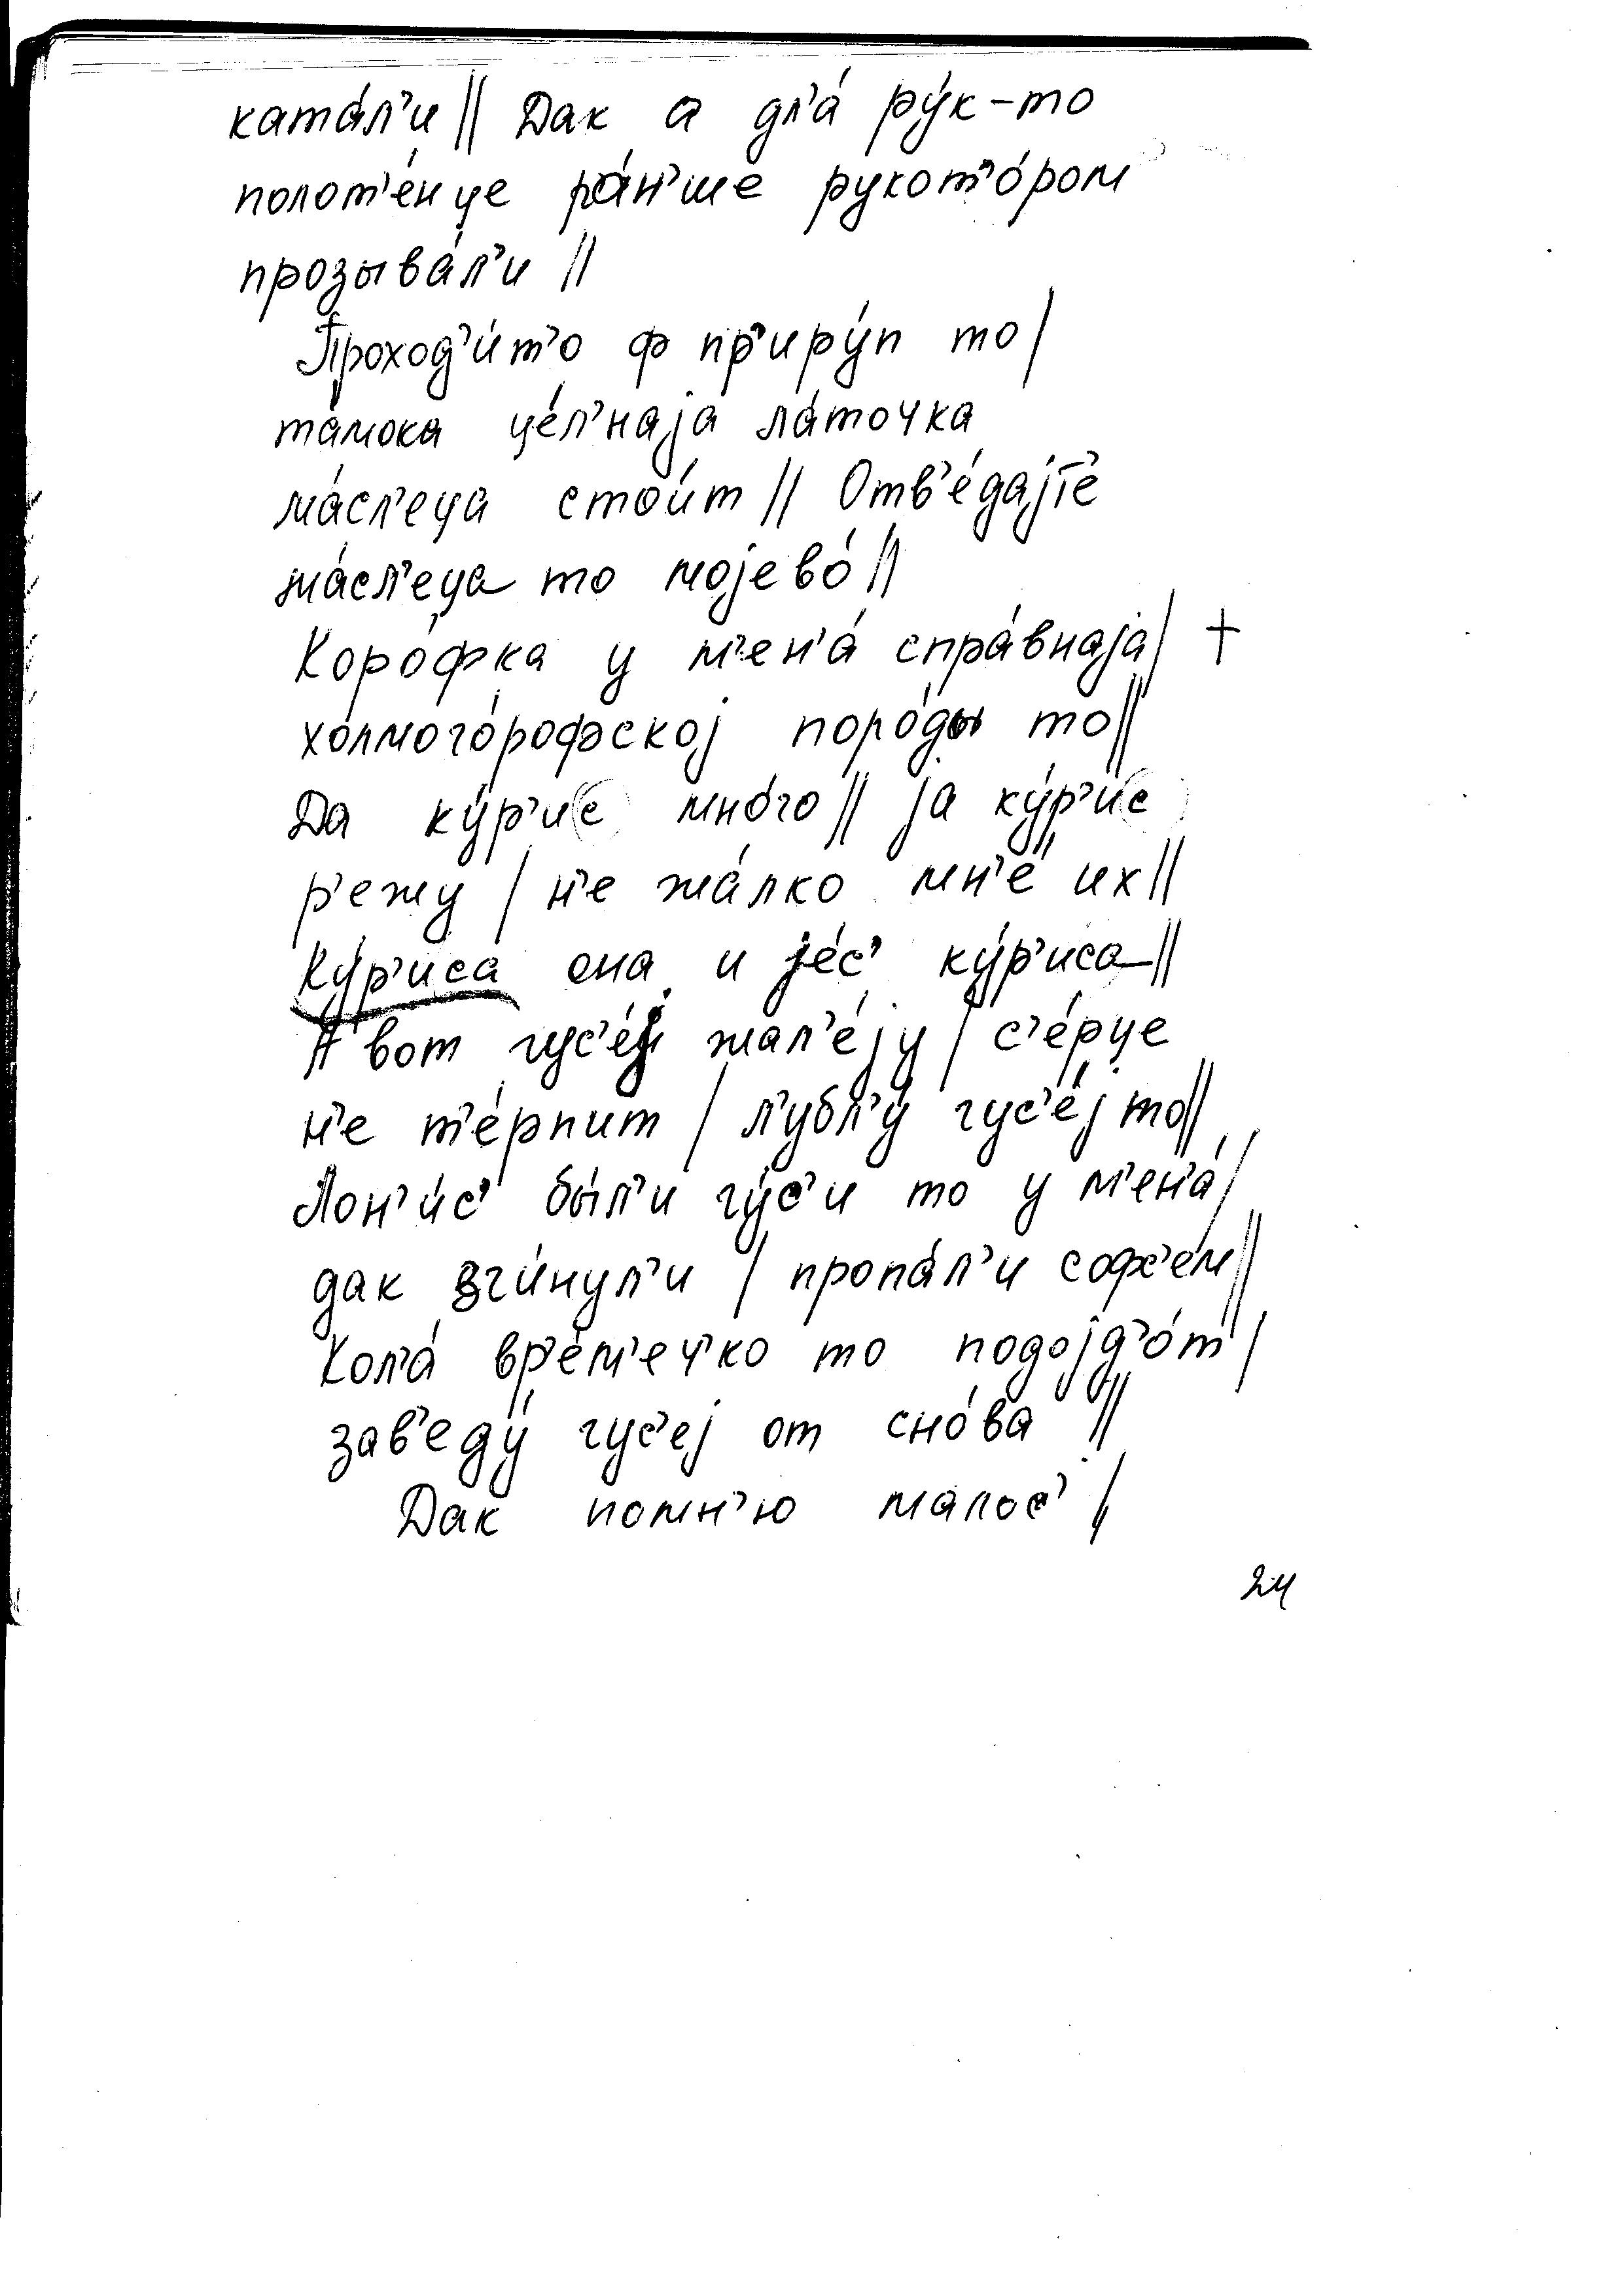 ката́л'и || Дак а дл'а́ ру́к-то
полот'е́нце ра́н'ше рукот'о́ром
прозыва́л'и ||
Проход'и́т'о ф пр'иру́п то |
та́мока це́л'наја ла́точка
ма́сл'еца стои́т || Отв'е́дајт'е
ма́сл'еца то мојево́ ||
Коро́фка у м'ен'а́ спра́внаја | +
холмого́рофској поро́ды то ||
Да ку́р'ис мно́го || ја ку́р'ис
р'ежу | н'е жа́лко мн'е их ||
Ку́р'иса она и је́с' ку́р'иса ||
А вот гус'е́ј жал'е́ју | с'е́рце
н'е т'е́рпит | л'убл'у́ гус'е́ј то ||
Лон'и́с' бы́л'и гу́с'и то у м'ен'а́ |
дак зги́нул'и | пропа́л'и софс'е́м ||
Кол'а́ вр'е́м'еч'ко то подојд'о́т |
зав'еду́ гус'еј от сно́ва ||
Дак помн'ю малос' |
24